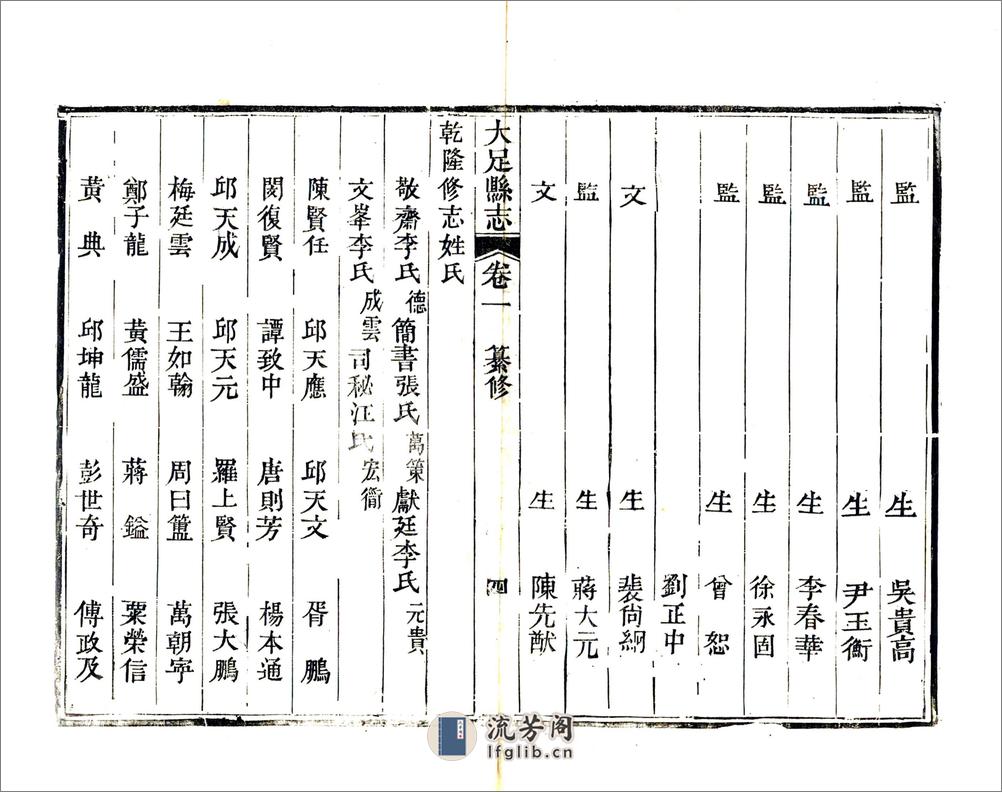 監生 吳貴高
監生 尹玉衡
監生 李春華
監生 徐永固
監生 曾恕
劉正中
文生 裴尚綱
監生 蔣大元
文生 陳先猷
大足縣志 卷一 纂修 四
乾隆修志姓氏
敬齋李氏德 簡書張氏萬策 獻廷李氏元貴
文峯李氏成雲 司秘汪氏宏衢
陳賢任 邱天應 邱天文 胥鵬
閔復賢 譚致中 唐則芳 楊本通
邱天成 邱天元 羅上賢 張大鵬
梅廷雲 王如翰 周曰簠 萬朝寧
鄭子龍 黃儒盛 蔣鎰 粟榮信
黃典 邱坤龍 彭世奇 傅政及
流芳阁
lfglib.cn